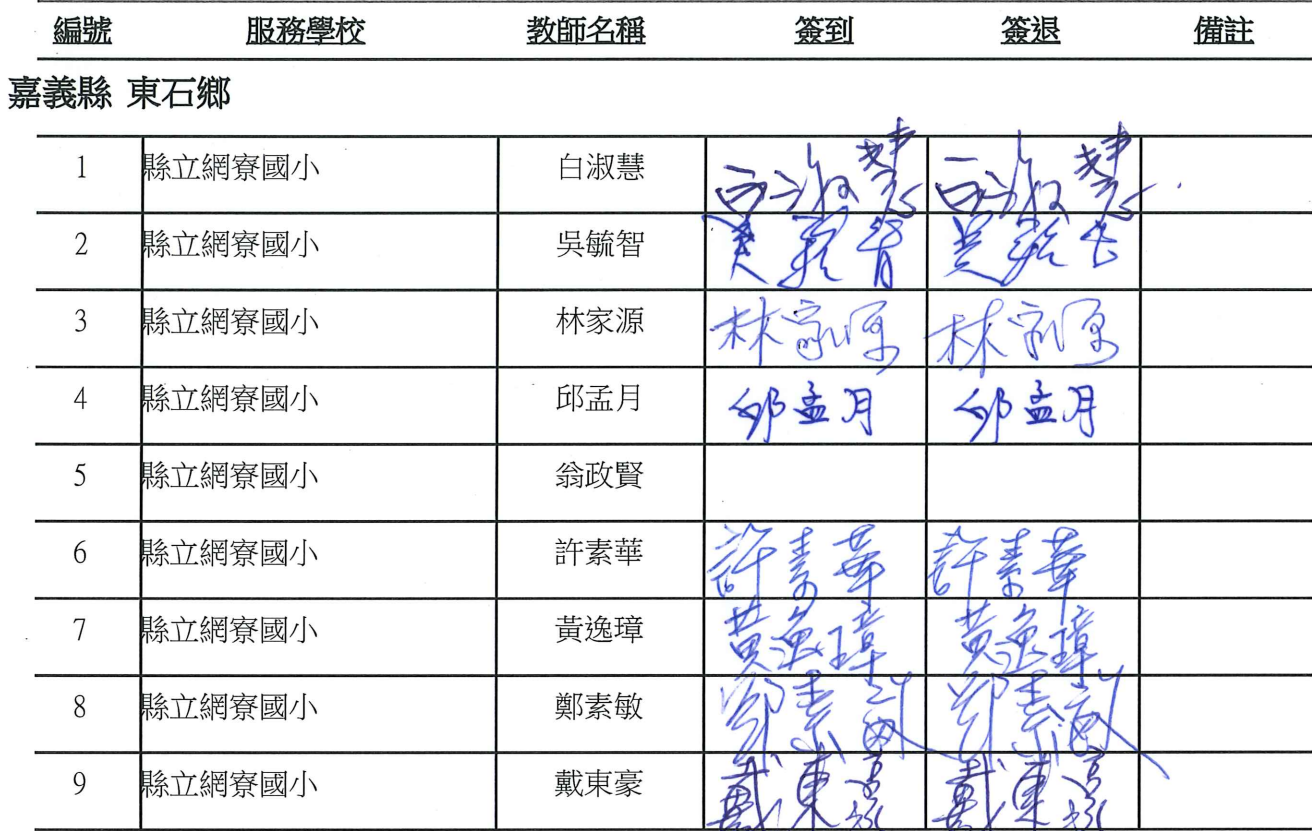 編號 服務學校 教師名稱 簽到 簽退 備註
嘉義縣 東石鄉
1 縣立網寮國小 白淑慧 白淑慧 白淑慧
2 縣立網寮國小 吳毓智 吳毓智 吳毓
3 縣立網寮國小 林家源 林家源 林家源
4 縣立網寮國小 邱孟月 邱孟月 邱孟月
5 縣立網寮國小 翁政賢
6 縣立網寮國小 許素華 許素華 許素華
7 縣立網寮國小 黃逸璋 黃逸璋 黃逸璋
8 縣立網寮國小 鄭素敏 鄭素敏 鄭素敏
9 縣立網寮國小 戴東豪 戴東豪 戴東豪